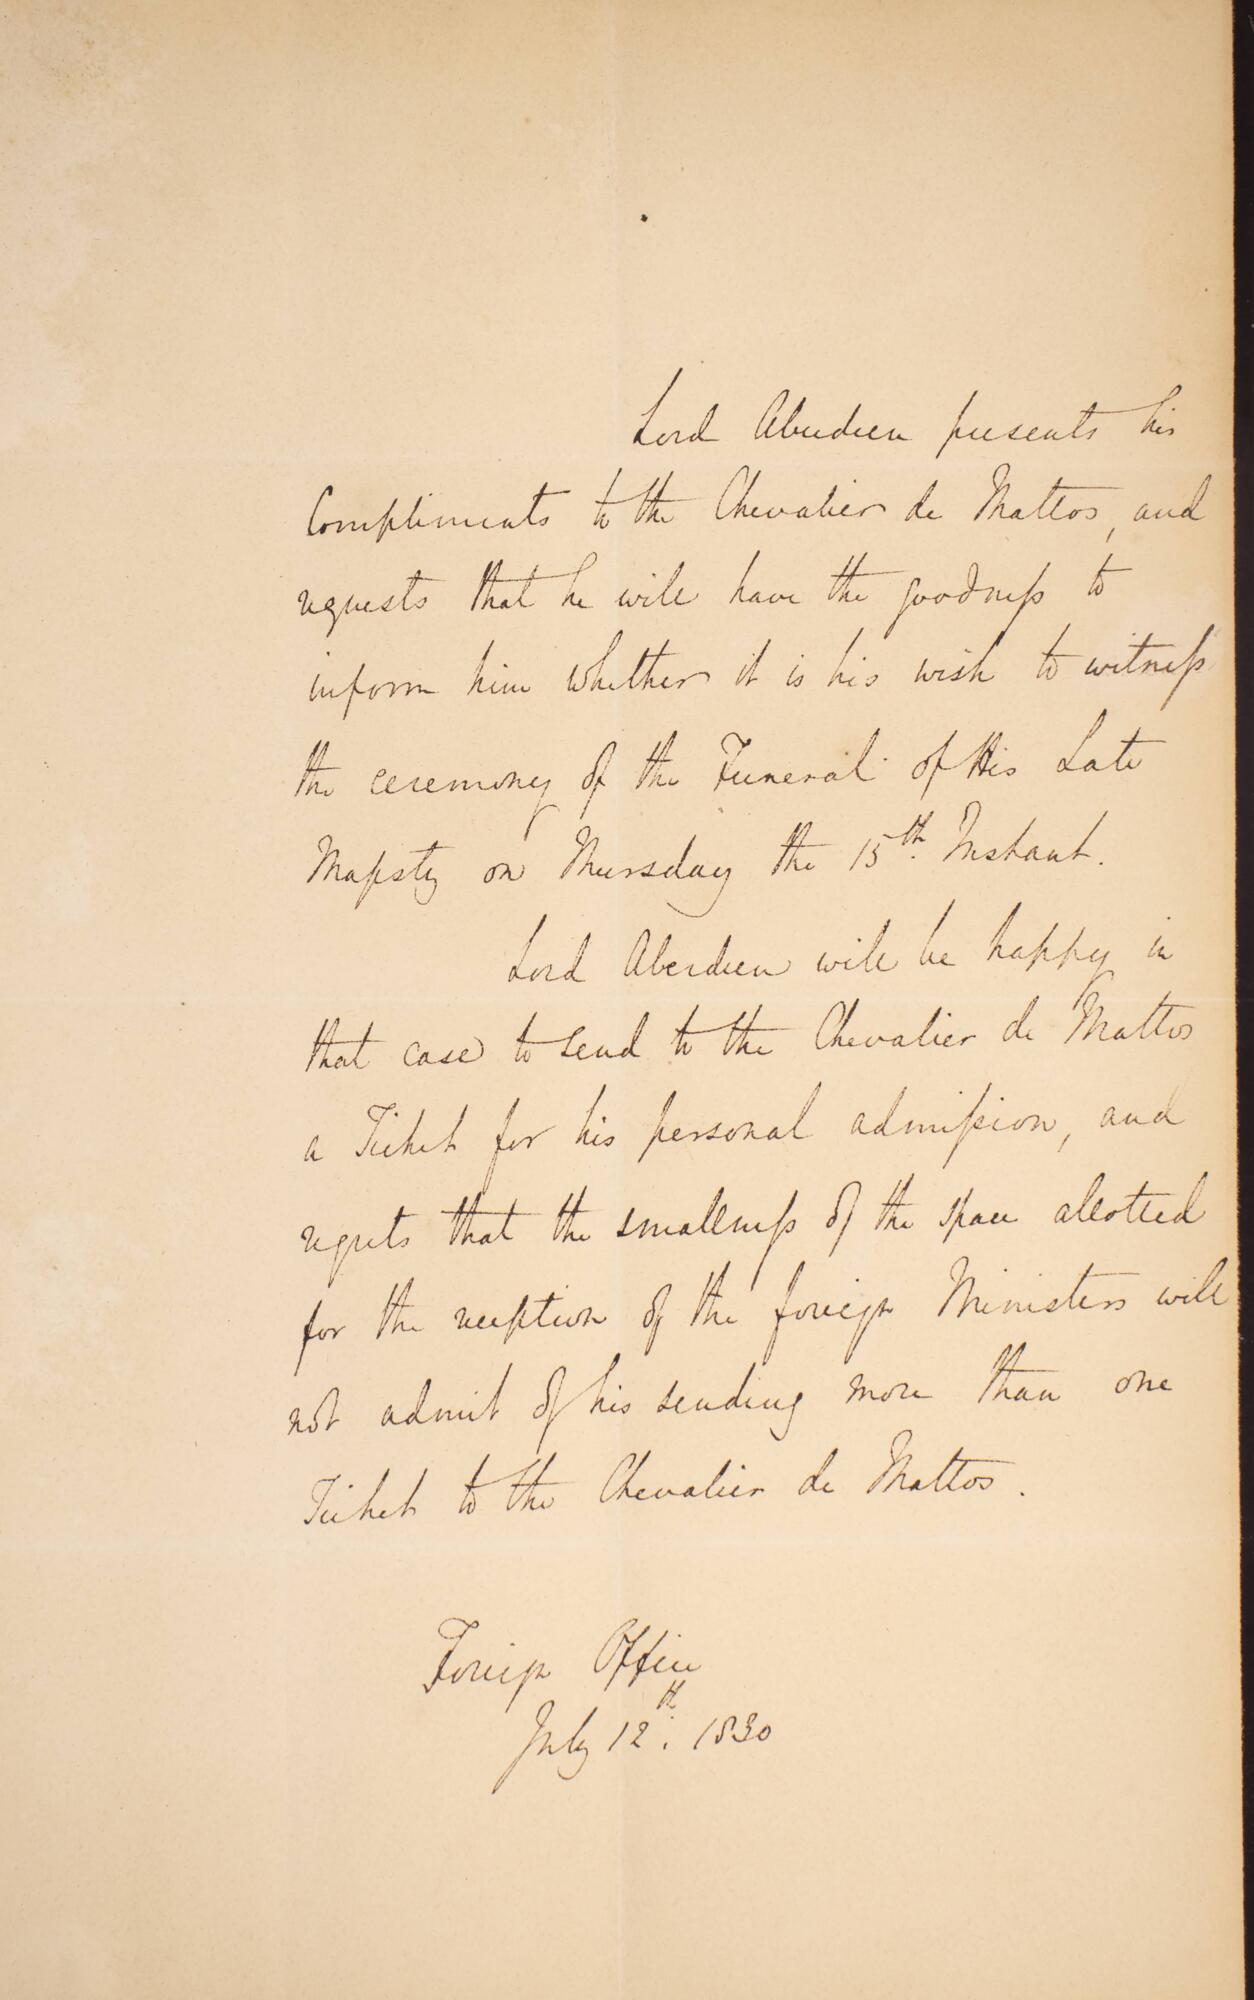 Lord Aberdeen presents his
Compliments to the Chevalier de Mattos, and
requests that he will have the goodness to
inform him whether it is his wish to witness
the ceremony of the Funeral of His Late
Majesty on Thursday the 15th. Instant.
Lord Aberdeen will be happy in
that case to send to the Chevalier de Mattos
a Ticket for his personal admission, and
regrets that the smallness of the space allotted
for the reception of the foreign Ministers will
not admit of his sending more than one
Ticket to the Chevalier de Mattos.
Foreign Office
July 12th. 1830